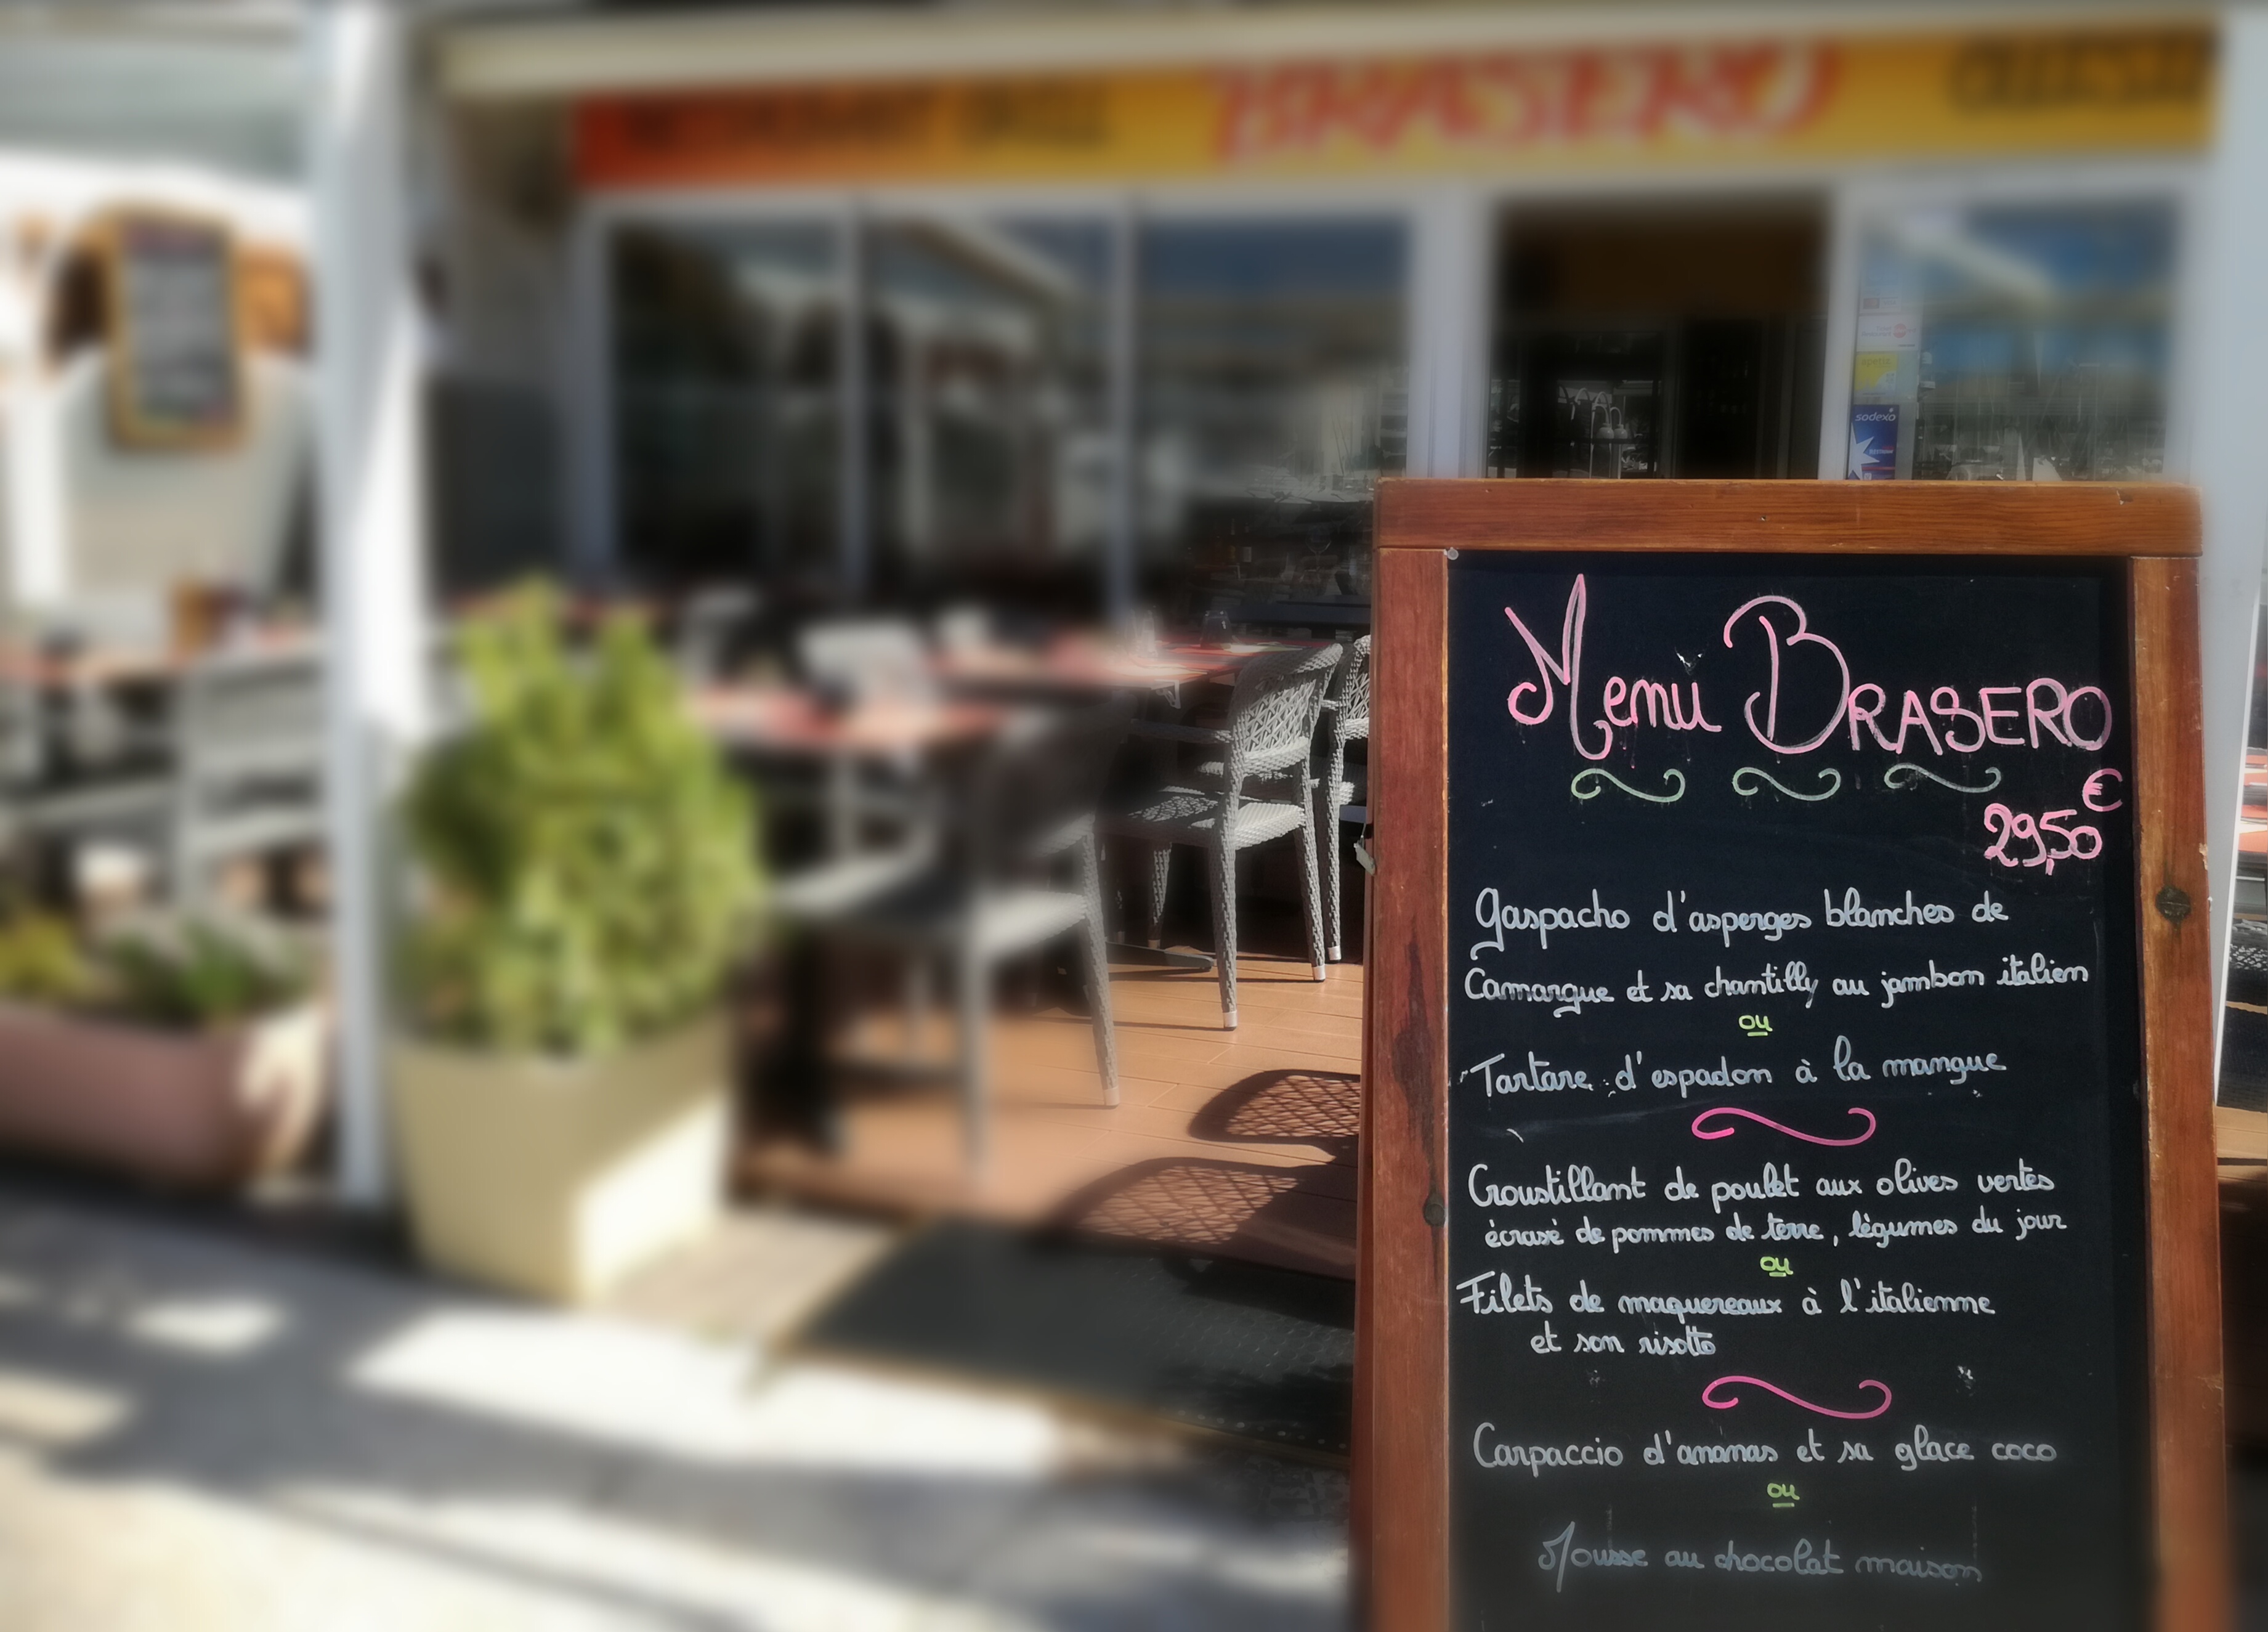 RESTAURANT GRILL BRASERO
sodexo
Menu BRASERO
€
29,50
Gaspacho d'asperges blanches de
Camargue et sa chantilly au jambon italien
ou
Tartare d'espadon à la mangue
Croustillant de poulet aux olives vertes
écrasé de pommes de terre, légumes du jour
ou
Filets de maquereaux à l'italienne
et son risotto
Carpaccio d'ananas et sa glace coco
ou
Mousse au chocolat maison